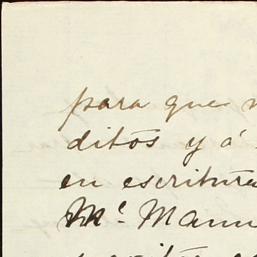 para que
ditos y á
en escritura
Mc. Manu